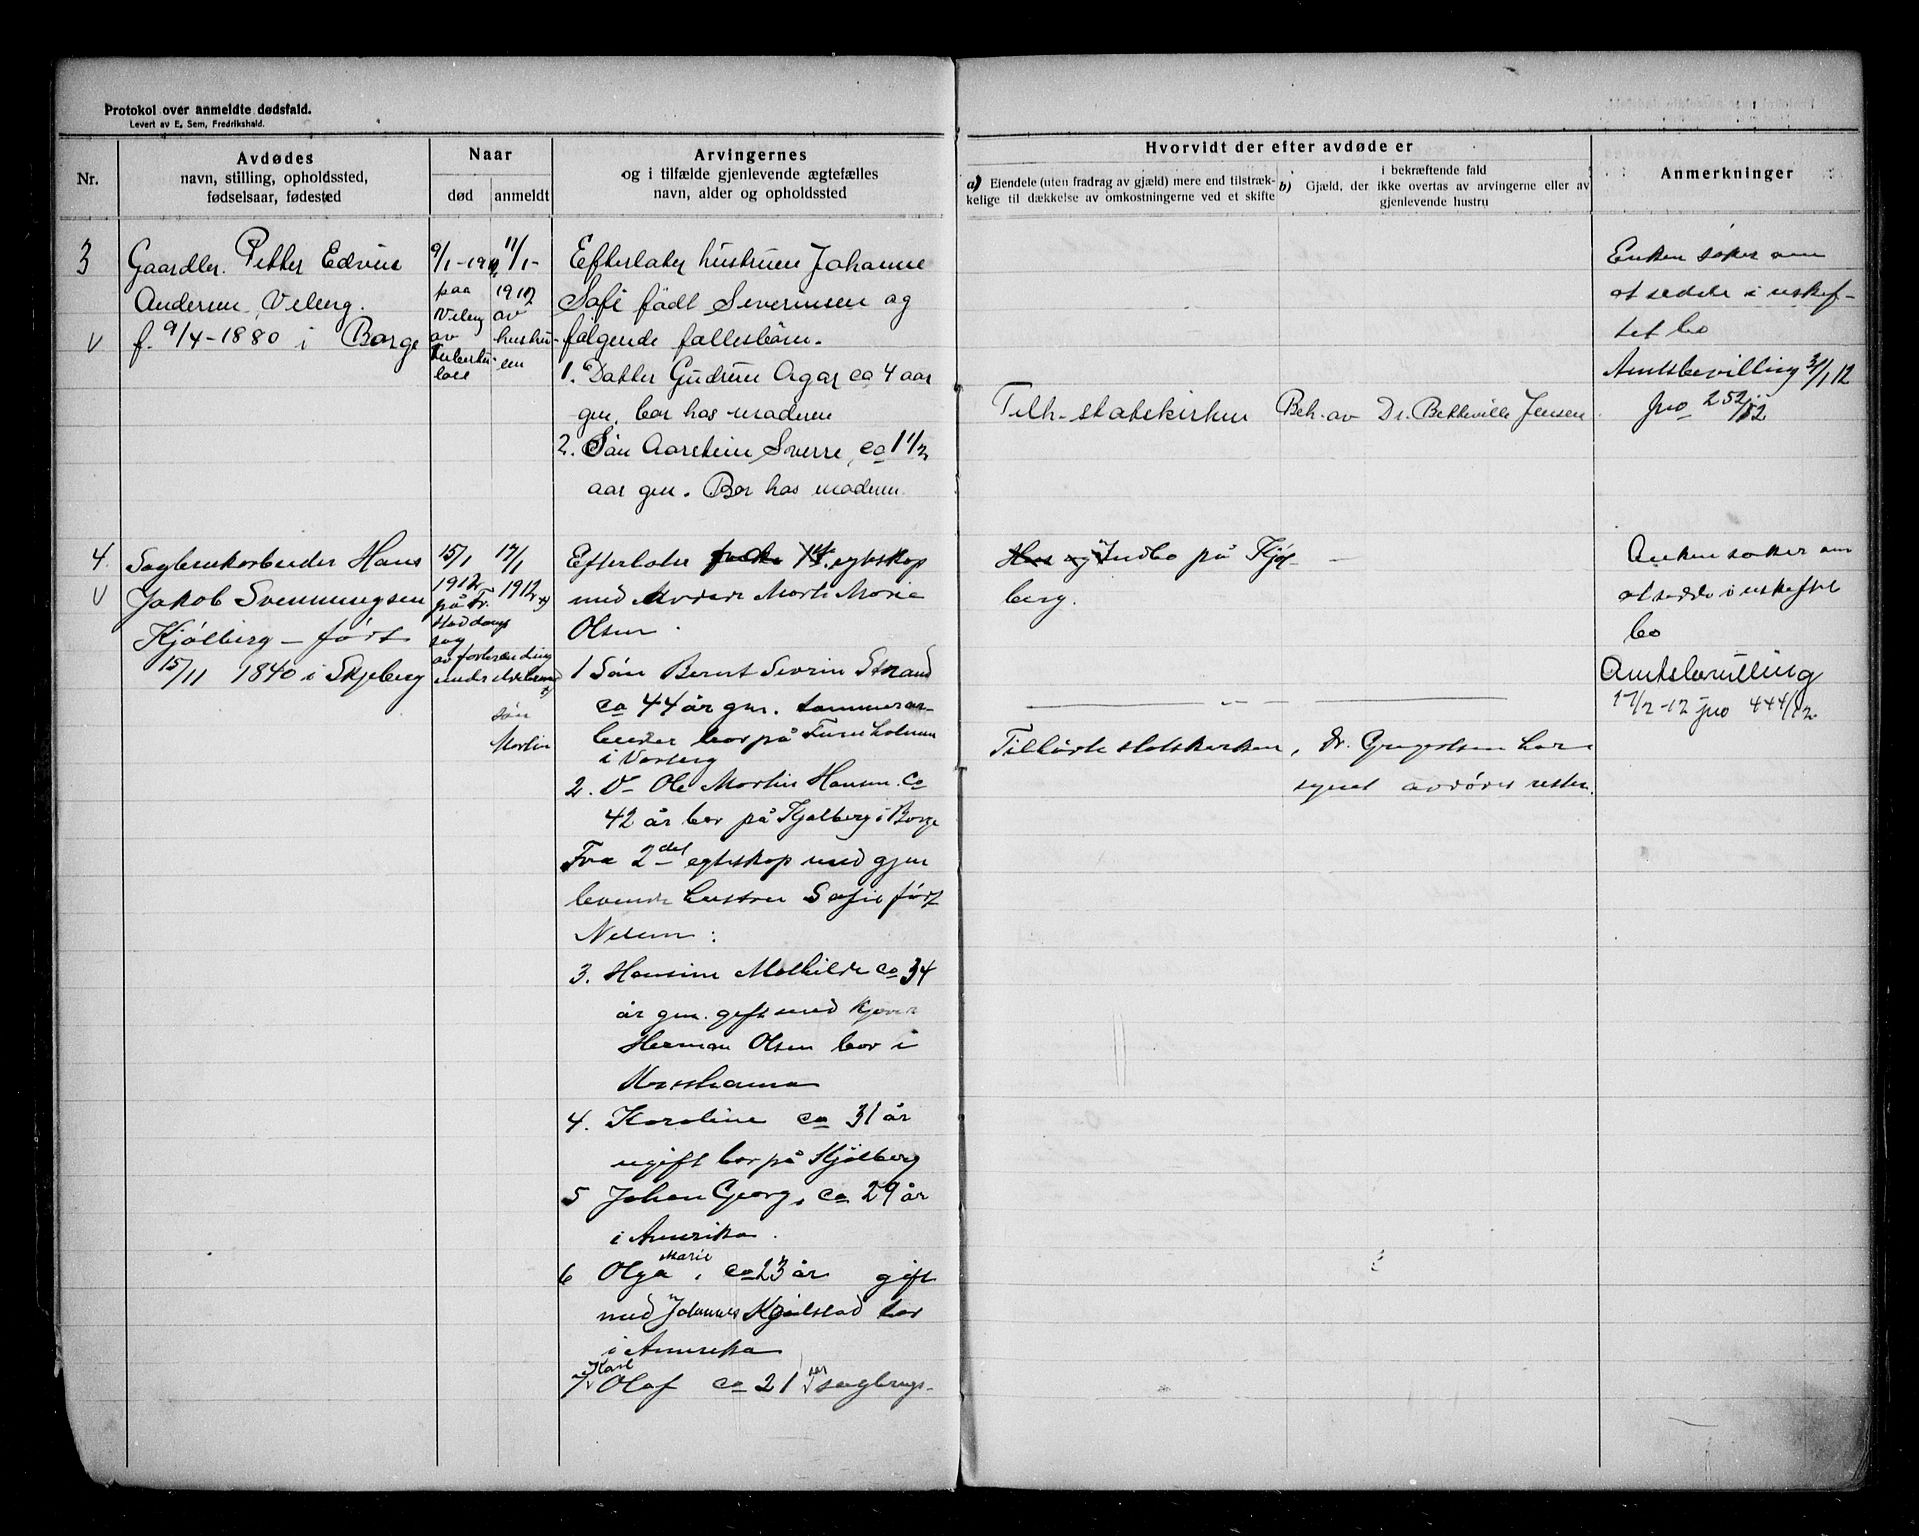 Protokol over anmeldte dødsfald.
Levert av E. Sem, Fredrikshald.
Nr.
Avdødes
navn, stilling, opholdssted,
fødselsaar, fødested
Naar
død
anmeldt
Arvingernes
og i tilfælde gjenlevende ægtefælles
navn, alder og opholdssted
Hvorvidt der efter avdøde er
a) Eiendele (uten fradrag av gjæld) mere end tilstræk-
kelige til dækkelse av omkostningerne ved et skifte
i bekræftende fald
b) Gjæld, der ikke overtas av arvingerne eller av
gjenlevende hustru
Anmerkninger
3
v
Gaardbr. Petter Edvin
Andersen, Veleng.
f. 9/4-1880 i Borge
9/1-1912
paa
Veleng
av
tuberku-
lose
11/1-
1912
av
hustru-
en
Efterlater hustruen Johanne
Sofi født Severinsen og
følgende fællesbørn.
1. Datter Gudrun Agar ca 4 aar
gm. bor hos moderen
2. Søn Aarstein Sverre, ca 1 1/2
aar gm. Bor hos moderen
Tilh. statskirken
Beh. av Dr. Betteville Jensen
Enken søker om
at sidde i uskif-
tet bo
Amtsbevilling 31/1 12
jno 252/12
4.
v
Sagbruksarbeider Hans
Jakob Svenningsen
Kjølberg – født
15/11 1840 i Skjeberg
15/1
1912
på Fr.
stad dampsag
av forbrænding
under
17/1
1912 x)
x)
søn
Martin
Efterlater 1ste egteskap
med avdøde Marte Marie
Olsen.
1 Søn Bernt Sevrin Strand
ca 44 år gm. tømmerar-
beider bor på Furuholmen
i Varteig
2. D– Ole Martin Hansen ca
42 år bor på Kjølberg i Borge
Fra 2det egteskap med gjen
levende hustru Sofie født
Nilsen :
3. Hansine Mathilde ca 34
år gm. gift med kjører
Herman Olsen bor i
4. Karoline ca 31 år
ugift bor på Kjølberg
5 Johan Georg, ca 29 år
i Amerika.
6 Olga Marie, ca 23 år gift
med Johannes Kjølstad bor
i Amerika
7 Karl Olaf ca 21 år sagbrugs-
Hus og Indbo på Kjøl
berg.
—
Tilhørte statskirken, Dr. Gregersen har
synet avdødes rester.
Enken søker om
at sidde i uskiftet
bo
Amtsbevilling
17/2-12 jno 444/12